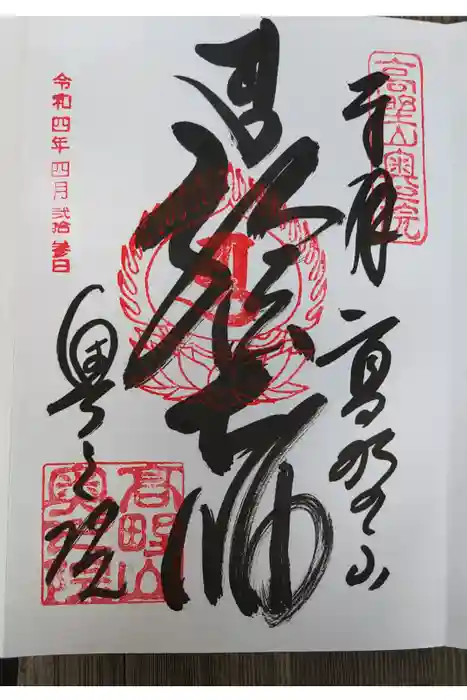 高野山奥之院
奉拝 高野山
弘法大師
令和四年四月弐拾参日
奥之院
高野山
奥之院